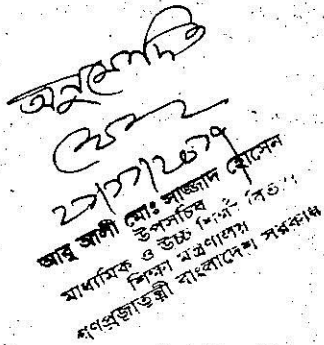 অনুমোদিত
আবু আলী মোঃ সাজ্জাদ হোসেন
উপসচিব
মাধ্যমিক ও উচ্চ শিক্ষা বিভাগ
শিক্ষা মন্ত্রণালয়
গণপ্রজাতন্ত্রী বাংলাদেশ সরকার